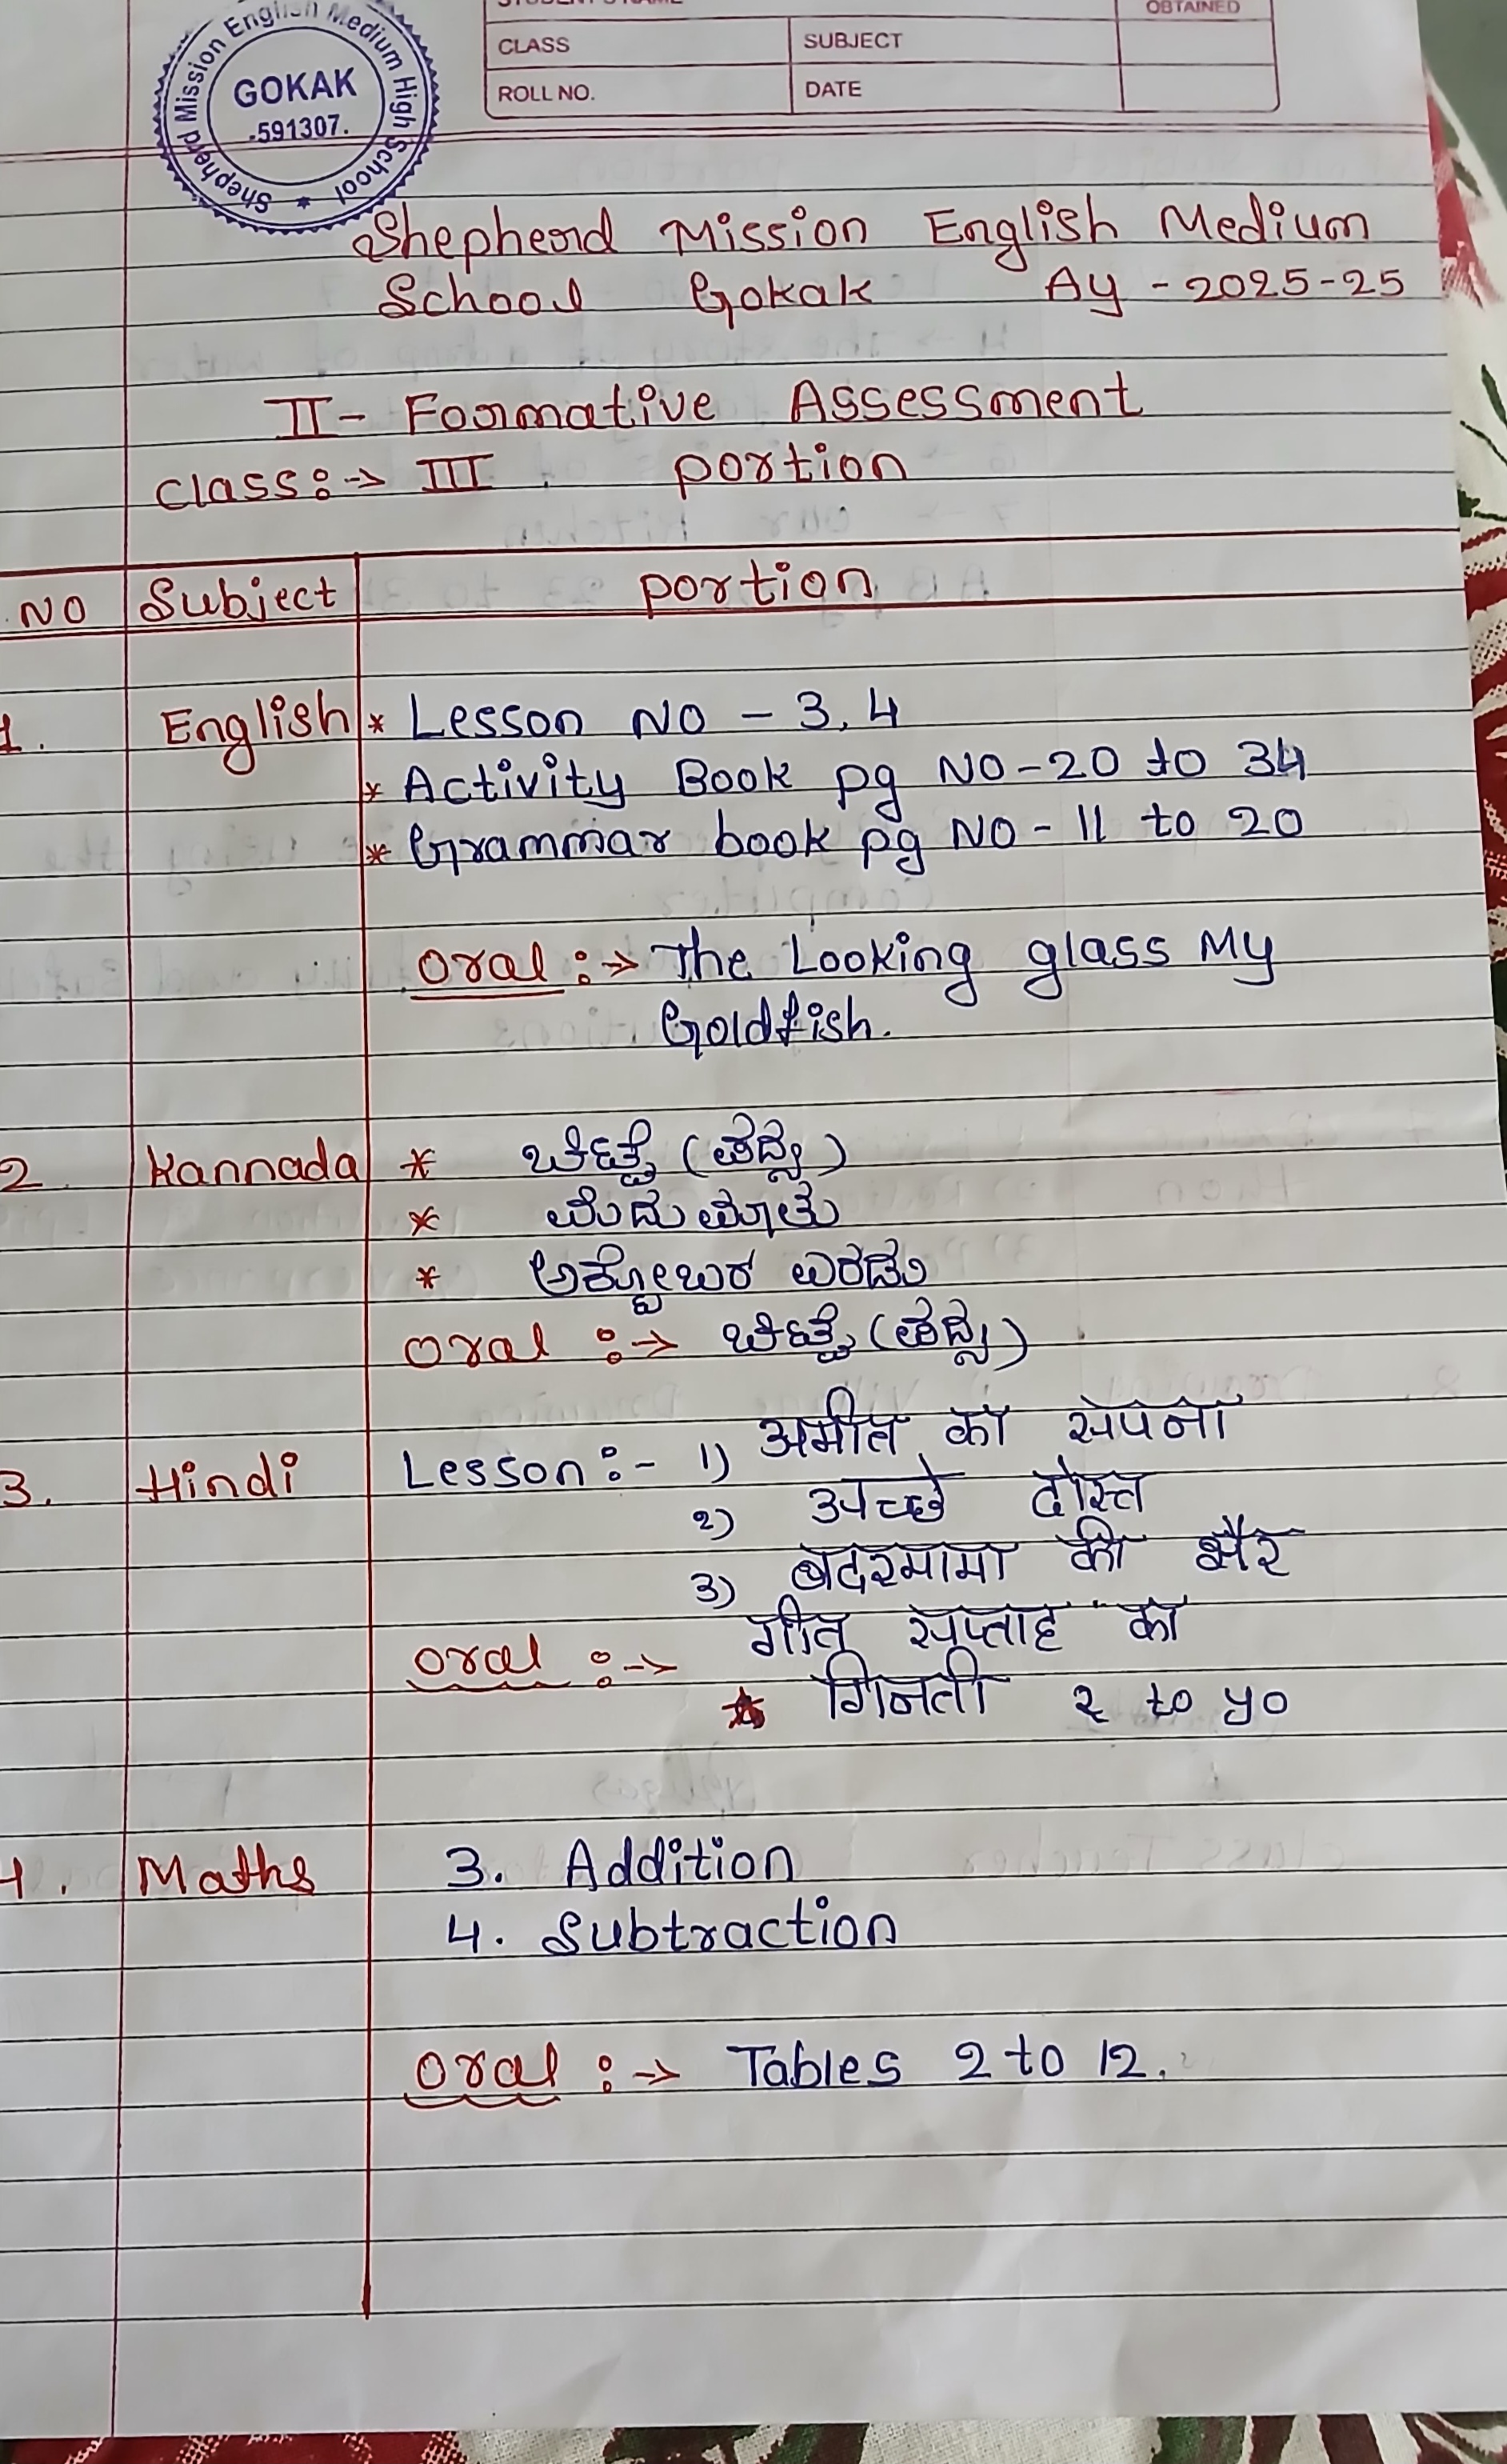 Shepherd Mission English Medium High School
GOKAK
-591307.
OBTAINED
CLASS SUBJECT
ROLL NO. DATE
Shepherd Mission English Medium
School Gokak AY - 2025-25
II - Formative Assessment
Class:-> III portion
NO Subject portion
1. English * Lesson NO - 3, 4
* Activity Book pg NO - 20 to 34
* Grammar book pg NO - 11 to 20
Oral :-> The Looking glass My
Goldfish.
2. Kannada * ಚಿಟ್ಟೆ (ಪದ್ಯ)
* ಮುದುಮಾತು
* ಅಕ್ಟೋಬರ ಎರಡು
Oral :-> ಚಿಟ್ಟೆ (ಪದ್ಯ)
3. Hindi Lesson :- 1) अमीत का सपना
२) अच्छे दोस्त
३) बंदरमामा की सैर
Oral :-> गीत सप्ताह का
* गिनती १ to ५०
4. Maths 3. Addition
4. Subtraction
Oral :-> Tables 2 to 12.